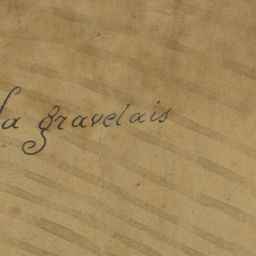 La gravelais